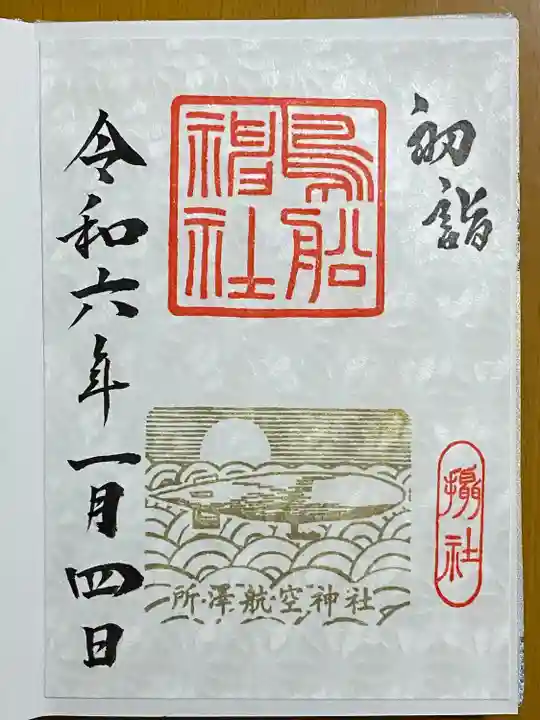 初詣
鳥船
神社
摂社
所澤航空神社
令和六年一月四日